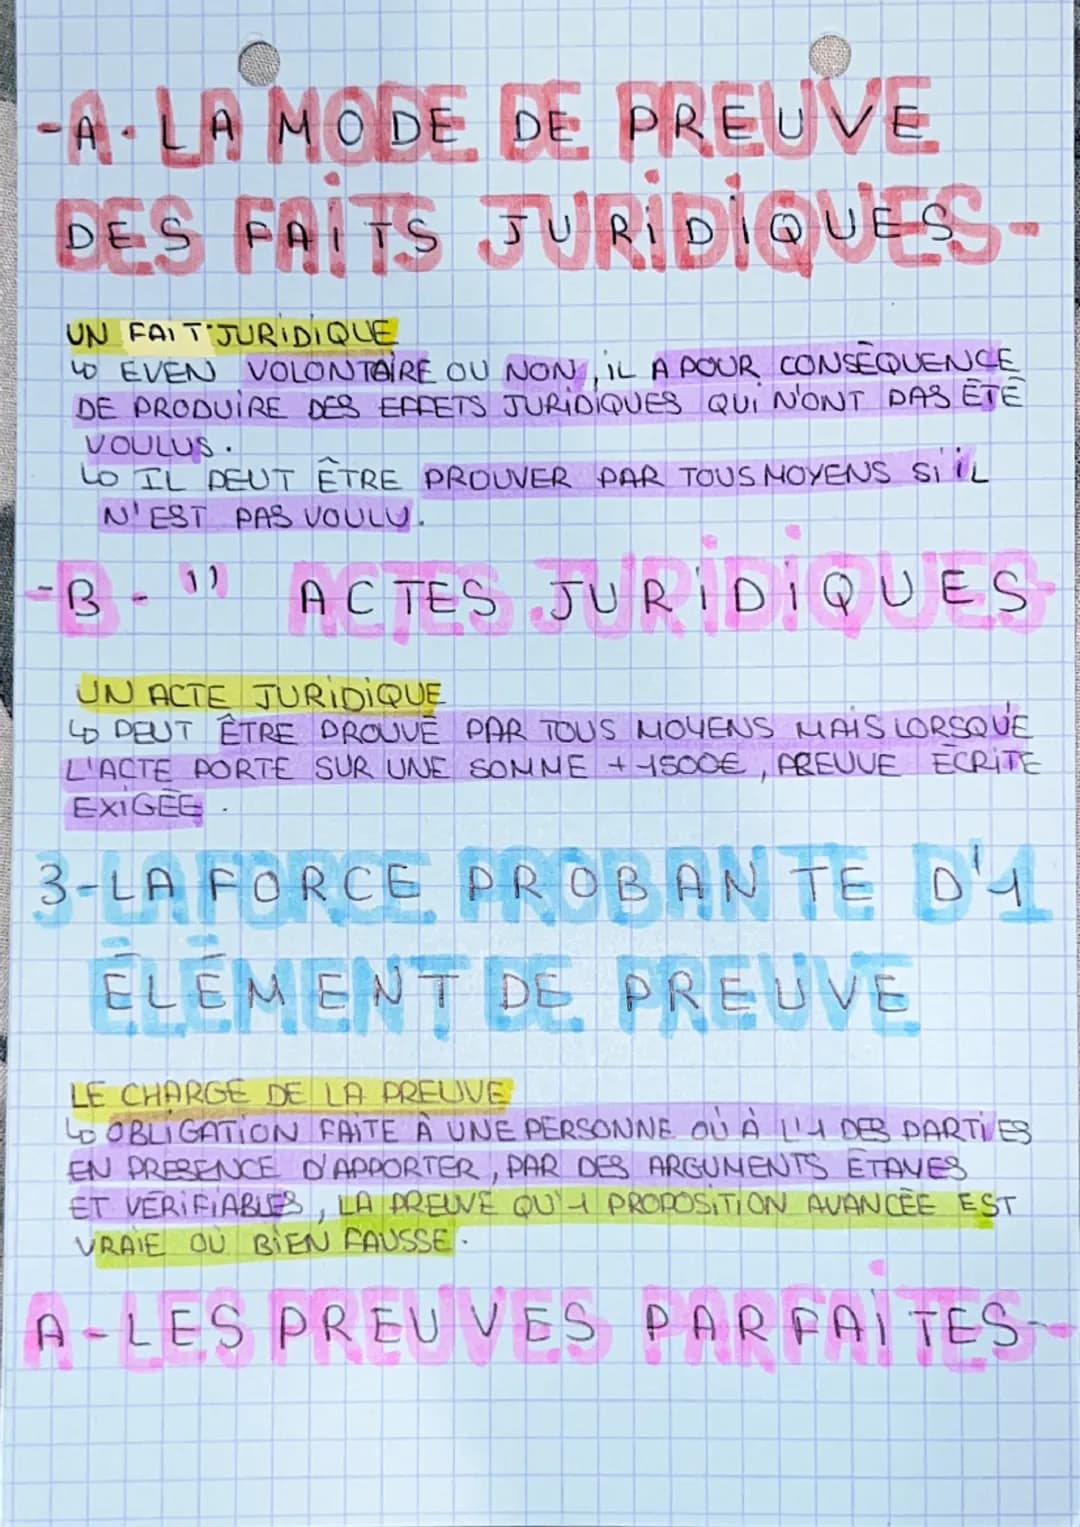 -A. LA MODE DE PREUVE
DES FAITS JURIDIQUES-
UN FAIT JURIDIQUE
↳ EVEN VOLONTAIRE OU NON, IL A POUR CONSÉQUENCE
DE PRODUIRE DES EFFETS JURIDIQUES QUI N'ONT PAS ÉTÉ
VOULUS.
↳ IL PEUT ÊTRE PROUVER PAR TOUS MOYENS SI IL
N'EST PAS VOULU.
-B- " ACTES JURIDIQUES-
UN ACTE JURIDIQUE
↳ PEUT ÊTRE PROUVÉ PAR TOUS MOYENS MAIS LORSQUE
L'ACTE PORTE SUR UNE SOMME + 1500€, PREUVE ÉCRITE
EXIGÉE.
3-LA FORCE PROBANTE D'1
ÉLÉMENT DE PREUVE
LE CHARGE DE LA PREUVE
↳ OBLIGATION FAITE À UNE PERSONNE OÙ À L'1 DES PARTIES
EN PRESENCE D'APPORTER, PAR DES ARGUMENTS ÉTAYES
ET VÉRIFIABLES, LA PREUVE QU'1 PROPOSITION AVANCÉE EST
VRAIE OÙ BIEN FAUSSE.
A-LES PREUVES PARFAITES-